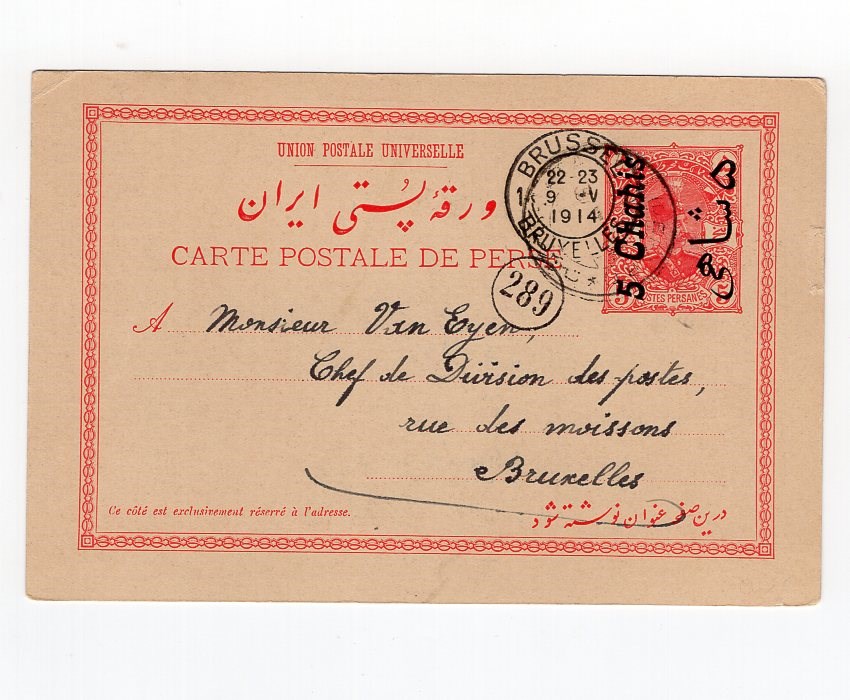 UNION POSTALE UNIVERSELLE
ورقهٔ پُستی ایران
CARTE POSTALE DE PERSE
BRUSSEL
22-23
9 V
1914
BRUXELLES
1
5 Chahis
5
POSTES PERSANES
289
A Monsieur Van Eyen,
Chef de Division des postes,
rue des moissons
Bruxelles
Ce côté est exclusivement réservé à l'adresse.
درین صفحه عنوان نوشته شود